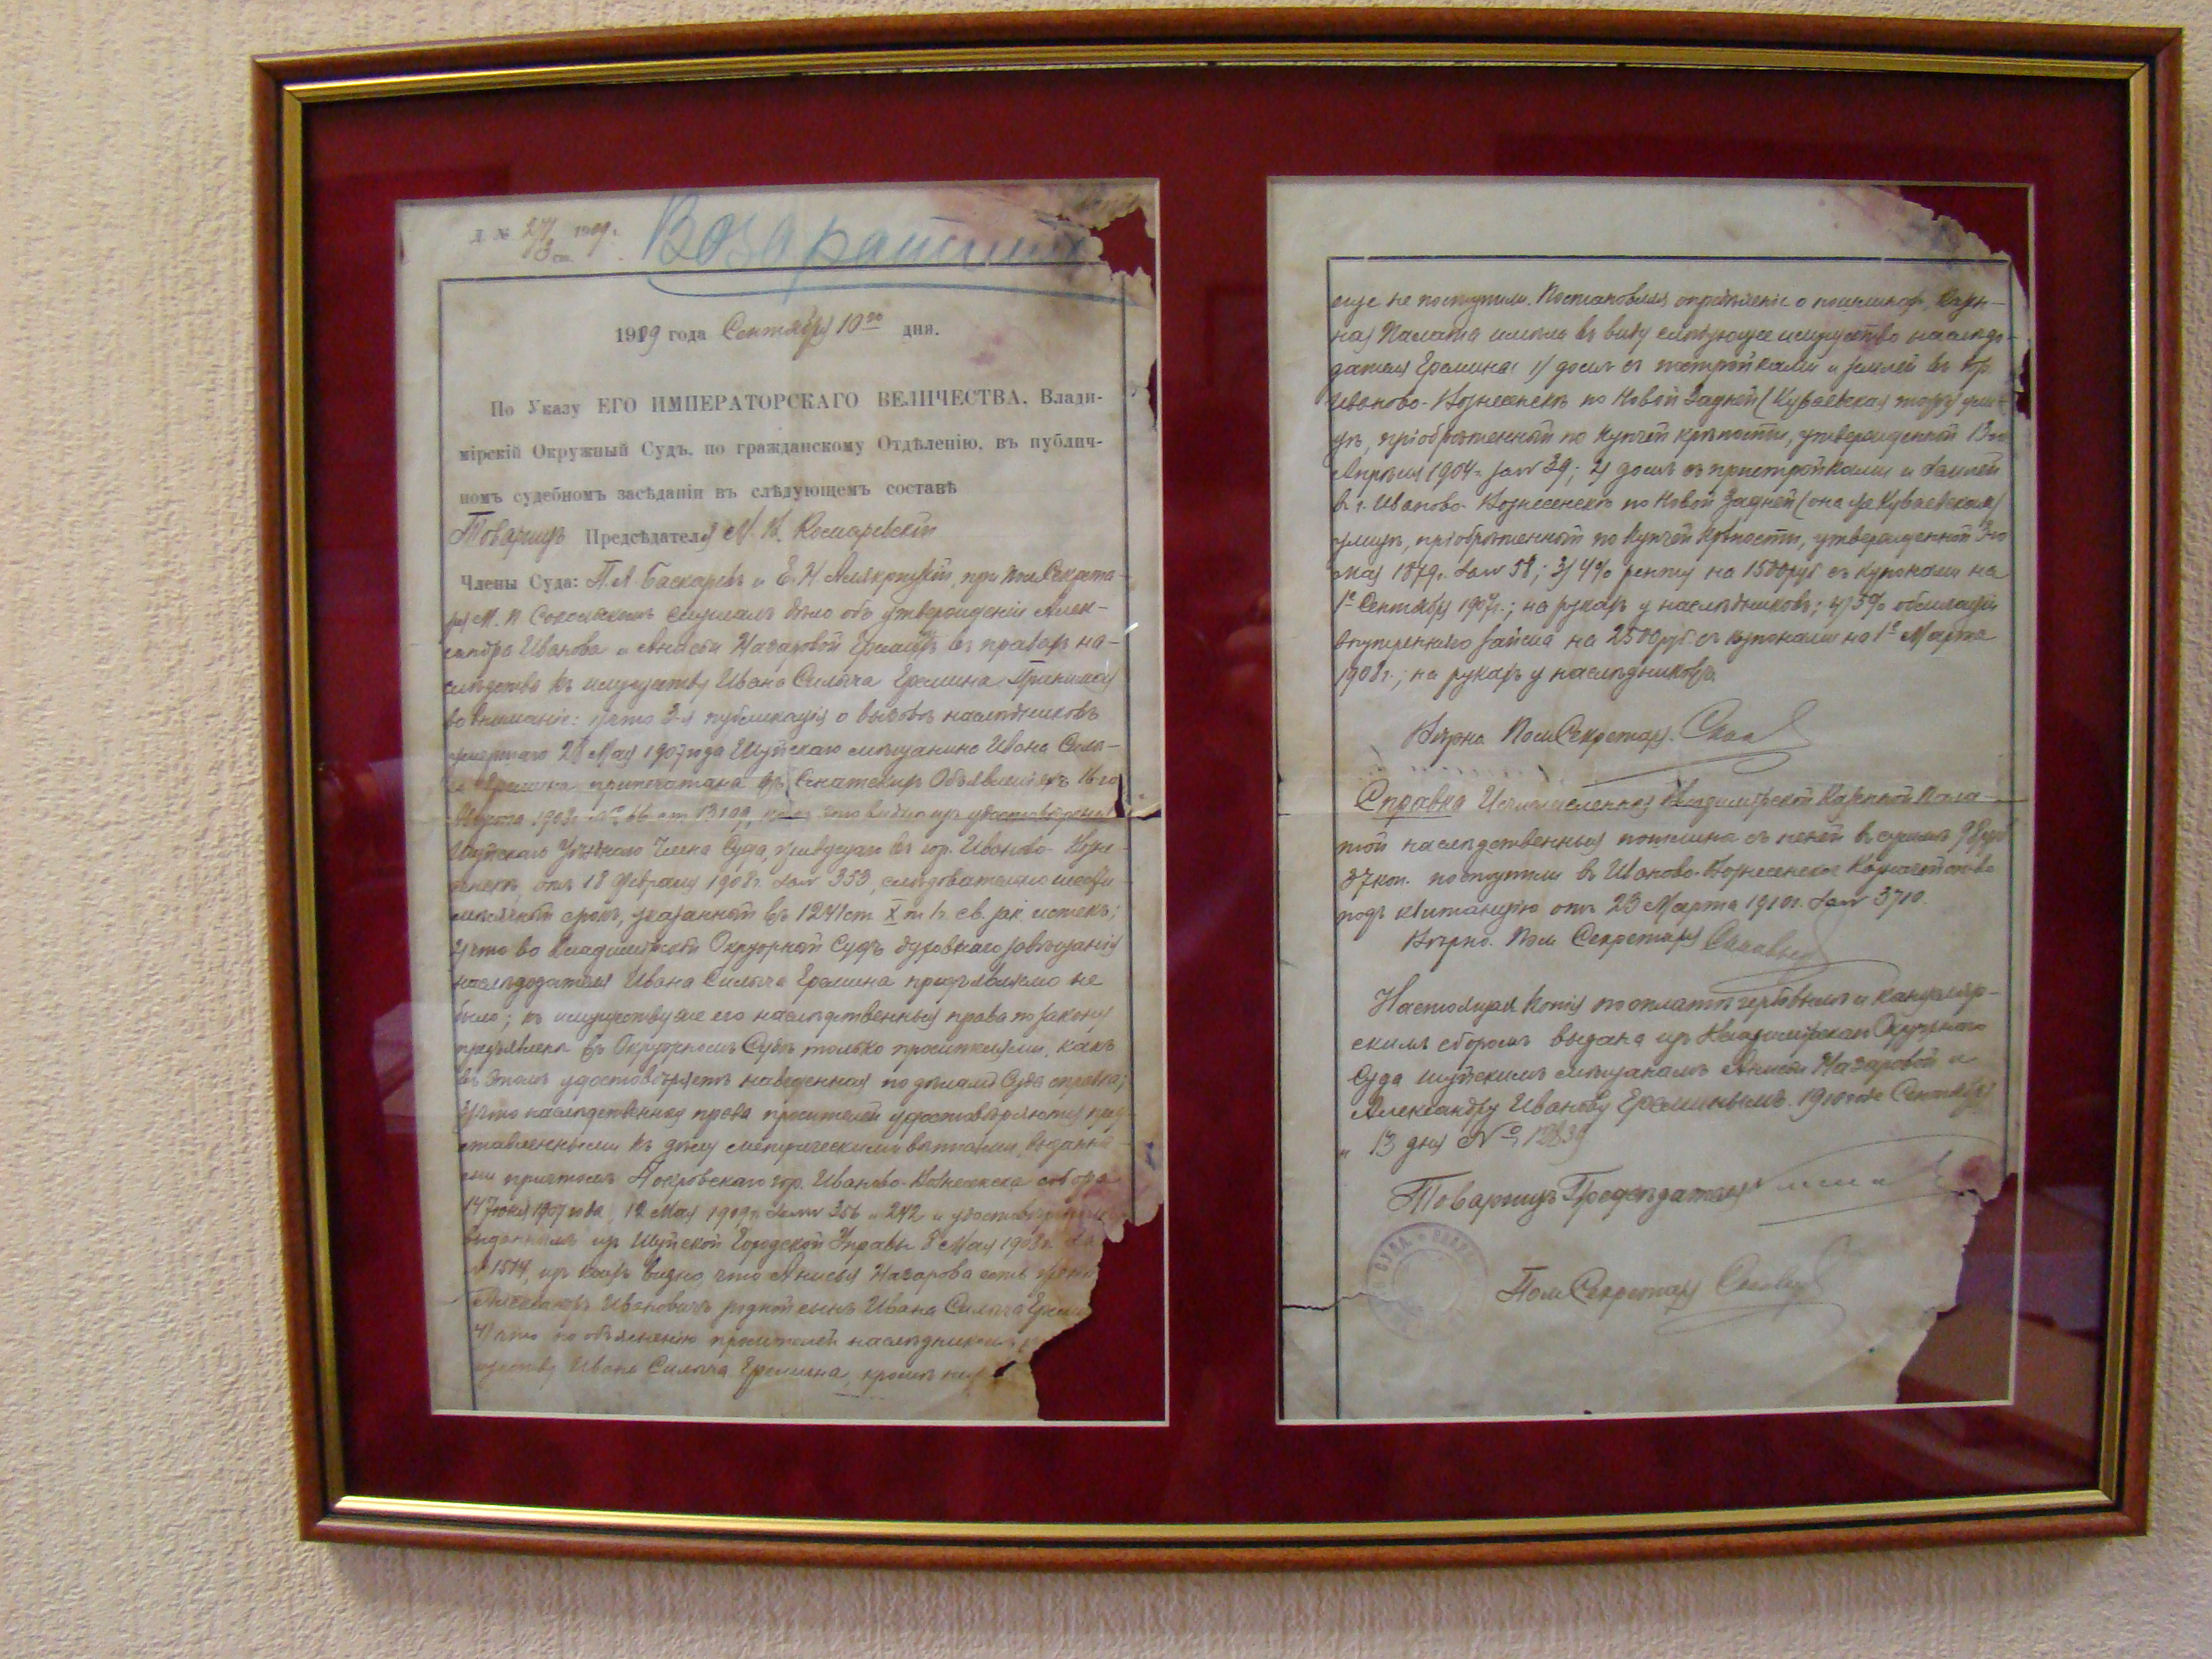 Д. № 1909 г.
Возвратить
1909 года Сентября 10го дня.
По Указу ЕГО ИМПЕРАТОРСКАГО ВЕЛИЧЕСТВА. Влади-
мірскій Окружный Судъ, по гражданскому Отдѣленію, въ публич-
номъ судебномъ засѣданіи въ слѣдующемъ составѣ
Товарищъ Предсѣдателя М. К. Комаревскій
Члены Суда: П. А. Баскаревъ и Е. Н. Алякринскій, при Пом. Секрета-
ря М. П. слушалъ дѣло объ утвержденіи Алек-
сандра Иванова и Анисьи Назаровой Ереминыхъ въ правахъ на-
слѣдства къ имуществу Ивана Силыча Еремина. Принимая
во вниманіе: 1/ что 3-я публикація о вызовѣ наслѣдниковъ
умершаго 28 Мая 1907 года Шуйскаго мѣщанина Ивана Силы-
ча Еремина припечатана въ Сенатскихъ Объявленіяхъ 16-го
1908 г. № 66 ст. 13109, какъ это видно изъ удостовѣренія
Шуйскаго Уѣзднаго Члена Суда, живущаго въ гор. Иваново-Возне-
сенскѣ, отъ 18 Февраля 1908 г. за № 353, слѣдовательно шести-
мѣсячный срокъ, указанный въ 1241 ст. X т. 1 ч. св. зак. истекъ;
2/ что во Владимірскій Окружной Судъ духовнаго завѣщанія
наслѣдодателя Ивана Силыча Еремина предъявлено не
было; къ имуществу же его наслѣдственныя права по закону
предъявлены въ Окружномъ Судѣ только просителями, какъ
въ этомъ удостовѣряетъ наведенная по дѣламъ Суда справка;
3/ что наслѣдственныя права просителей удостовѣряются пред-
ставленными къ дѣлу метрическими выписями, выданны-
ми причтомъ Покровскаго гор. Иваново-Вознесенска собора
1907 года, 12 Мая 1909 г. за №№ 356 и 242 и удостовѣреніемъ
выданнымъ изъ Шуйской Городской Управы 8 Мая 1908 г. за
№ 1514, изъ коихъ видно, что Анисья Назарова есть жена,
Александръ Ивановичъ родной сынъ Ивана Силыча Ереми
4/ что по объясненію просителей наслѣдниковъ
ществу Ивана Силыча Еремина, кромѣ нихъ
еще не поступили. Постановляя опредѣленіе о пошлинахъ, Казен-
ная Палата имѣла въ виду слѣдующее имущество наслѣдо-
дателя Еремина: 1) домъ съ постройками и землей въ гор.
Иваново-Вознесенскѣ по Новой Задней (Куваевская тожъ) ули-
цѣ, пріобрѣтенный по купчей крѣпости, утвержденной 13го
Апрѣля 1904 г. за № 39; 2) домъ съ пристройками и землей
въ г. Иваново-Вознесенскѣ по Новой Задней (она же Куваевская)
улицѣ, пріобрѣтенный по купчей крѣпости, утвержденной 3го
Мая 1879 г. за № 58; 3) 4% ренту на 1500 руб. съ купонами на
1е Сентября 1907 г.; на рукахъ у наслѣдниковъ; 4) 5% облигаціи
внутренняго займа на 2500 руб. съ купонами на 1е Марта
1908 г.; на рукахъ у наслѣдниковъ.
Вѣрно. Пом. Секретаря
Справка. Исчисленная Владимірской Казенной Пала-
той наслѣдственная пошлина съ пеней въ суммѣ
37 коп. поступили въ Иваново-Вознесенское Казначейство
подъ квитанцію отъ 23 Марта 1910 г. за № 3710.
Вѣрно. Пом. Секретаря
Настоящая копія по оплатѣ гербовымъ и канцеляр-
скимъ сборомъ выдана изъ Владимірскаго Окружнаго
Суда шуйскимъ мѣщанамъ Анисьѣ Назаровой и
Александру Иванову Ереминымъ. 1910 года Сентября
" 13 дня №
Товарищъ Предсѣдателя
Пом. Секретаря
СУДА